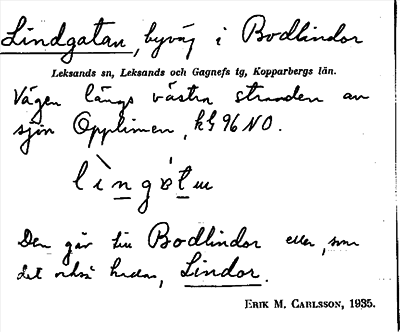 Lindgatan, byväg i Bodlindor
Leksands sn, Leksands och Gagnefs tg, Kopparbergs län.
Vägen längs västra stranden av
sjön Opplimen, kf 96 NO.
Den går till Bodlindor eller, som
det också kallas, Lindor.
ERIK M. CARLSSON, 1935.